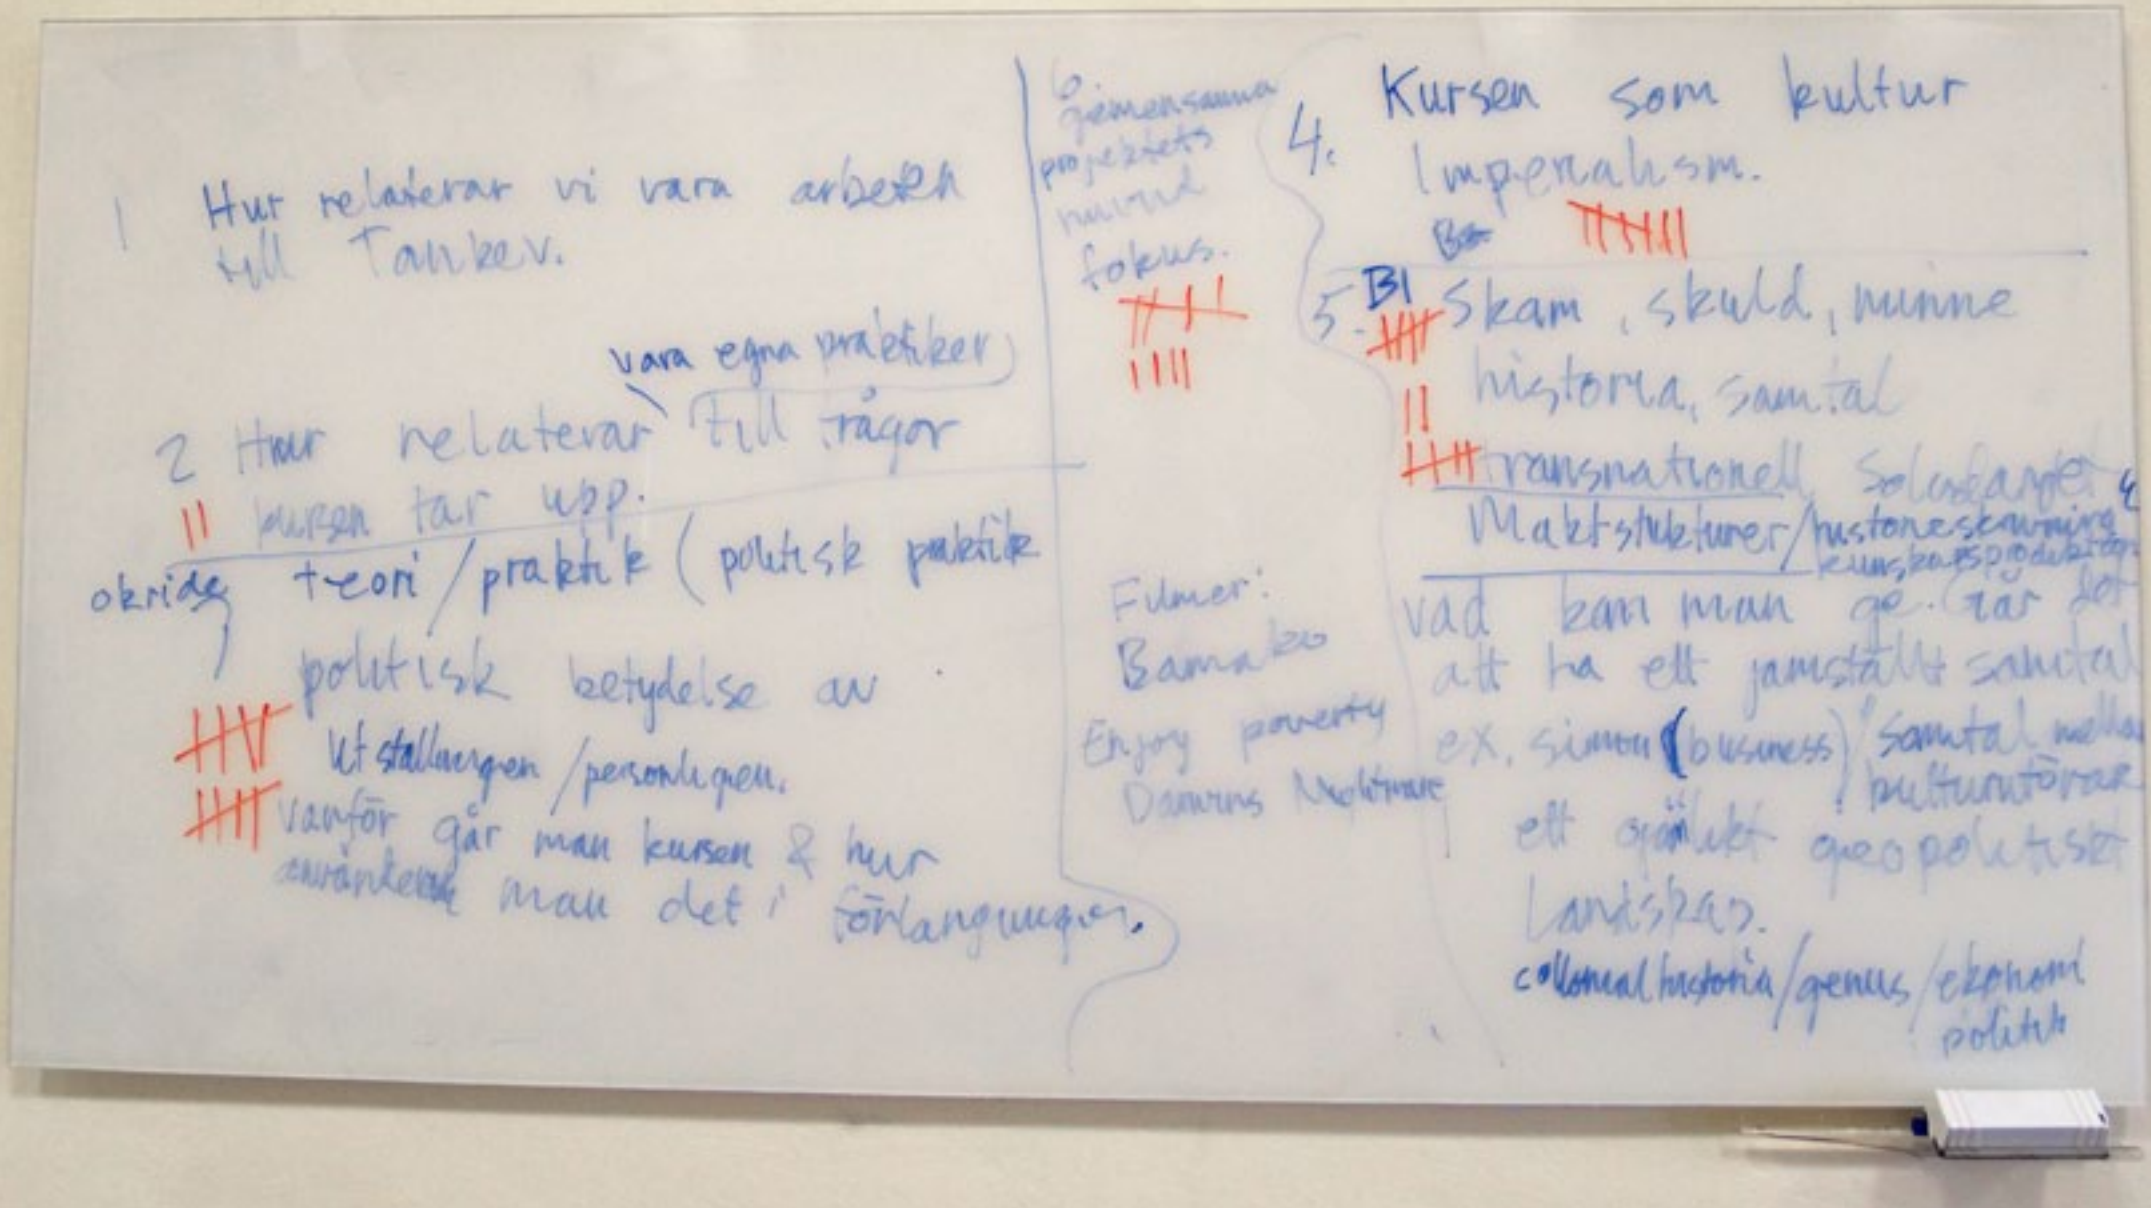 1 Hur relaterar vi vara arbeten
till Tankev.
vara egna praktiker
2 Hur relaterar till frågor
kursen tar upp.
teori / praktik ( politisk praktik
politisk betydelse av
utställningen / personligen.
varför går man kursen & hur
man det i förlängningen.
6
gemensamma
projektets
fokus.
Filmer:
Bamako
Enjoy poverty
Darwins Nightmare
4. Kursen som kultur
Imperialism.
5. B1 Skam, skuld, minne
historia, samtal
transnationell
Maktstukturer / historieskrivning
kunskapsproduktion
vad kan man ge. Går det
att ha ett jamställt samtal
ex. simon (business) "samtal mellan
kulturutövrar
ett ojämlikt geopolitiskt
Landskap.
collonial historia / genus / ekonomi
politik